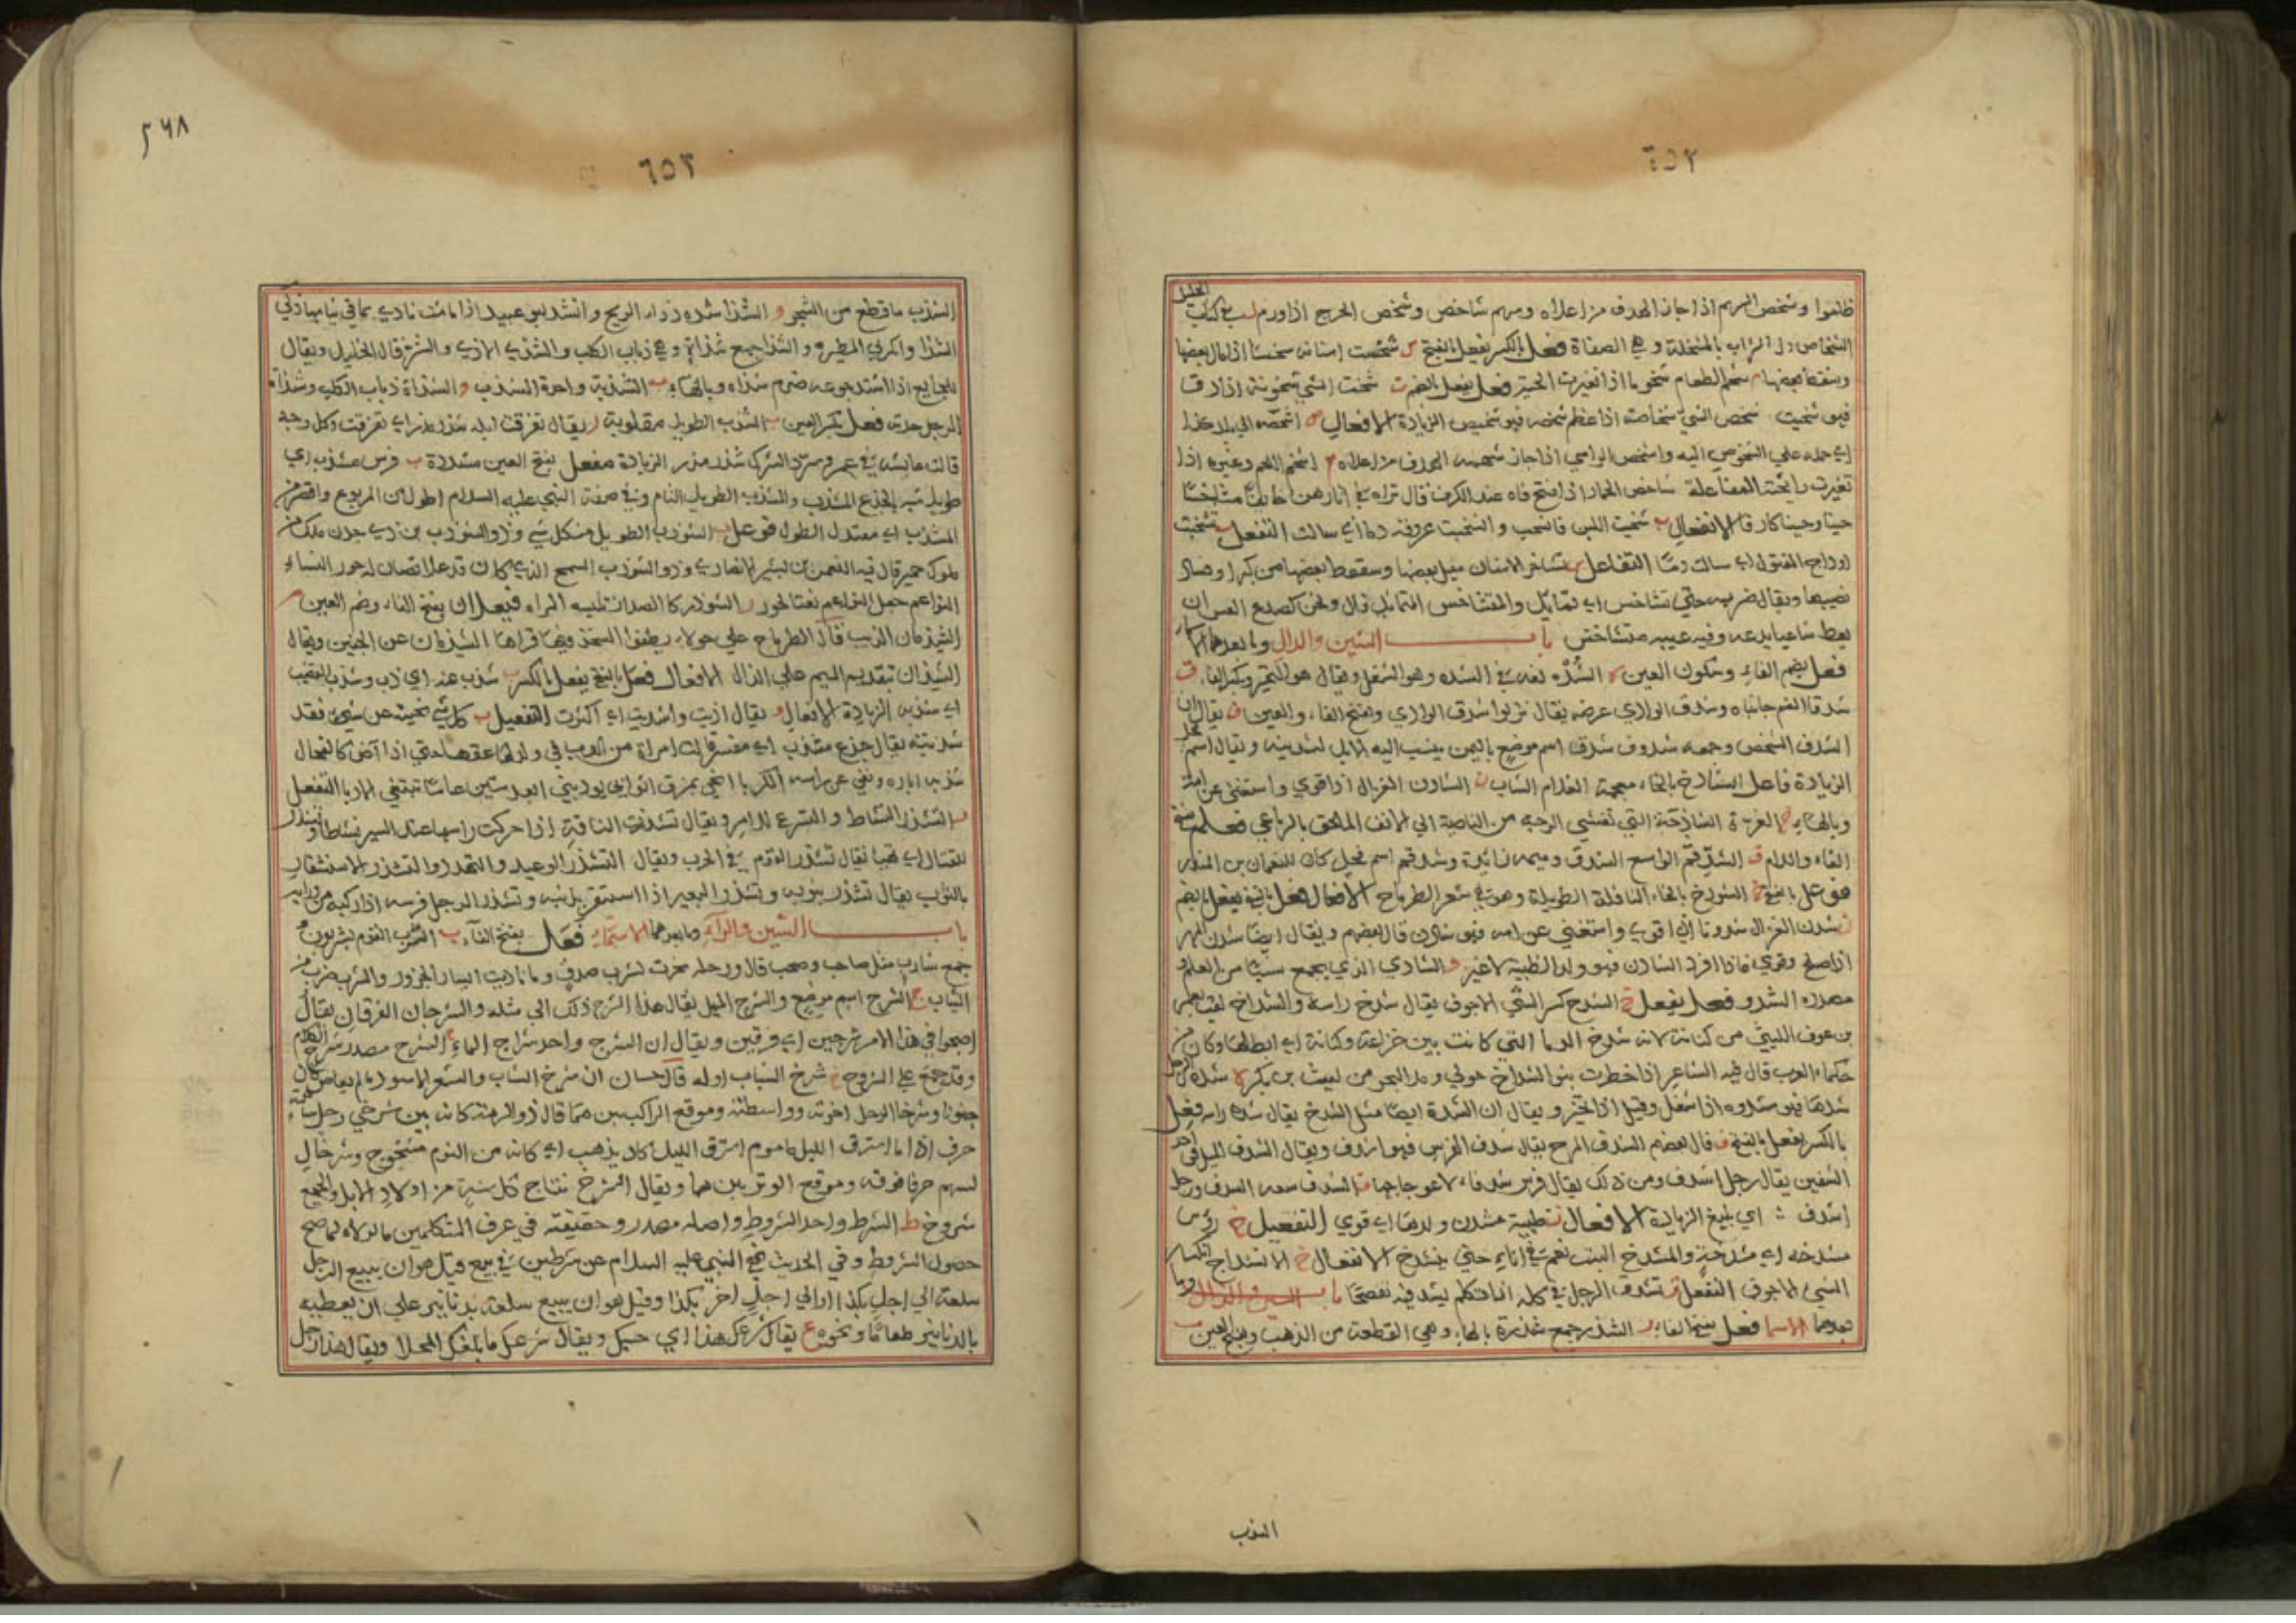 ٦٥٢
وشخص السهم اذا جاز الهدف من اعلاه وسهم شاخص وشخص الجرح اذا ورم
فعل بالكسر يفعل بالفتح س شخست اسنانه
شخم الطعام شخوما اذا تغيرت فعل يفعل بالضم ت شخت الشي شخوتة اذا دق
فهو شخيت شخص الشي شخاصة اذا عظم شخصه فهو شخيص الزيادة الافعال ص اشخصه الي بلد كذا
اي حمله علي الشخوص اليه واشخص الرامي اذا جاز سهمه الهدف من اعلاه م اشخم اللحم وغيره اذا
تغيرت رائحته المفاعلة شاخص الحمار اذا فتح فاه عند الكرف قال تراه في
حينا وحينا كارفا الانفعال ب شخبت اللبن فانشخب وانشخبت عروقه دما اي سالت التفعل ب تشخبت
اوداج المقتول اي سالت دما التفاعل س تشاخس الاسنان ميل بعضها وسقوط بعضها من كبر او
ويقال ضربه حتي تشاخس اي تمايل والمتشاخس المتمايل قال ونحن كصدع العس ان
يعط شاعبا يدعه وفيه عيبه متشاخس باب الشين والدال وما بعدهما
فعل بضم الفاء وسكون العين ه الشده لغة في الشده وهو الشغل ويقال هو التحير وبكسر الفاء ق
شدقا الفم جانباه وشدق الوادي عرضه يقال نزلوا شدق الوادي وبفتح الفاء والعين ف يقال ان
الشدف الشخص وجمعه شدوف شدن اسم موضع باليمن ينسب اليه الابل لشدنية ويقال اسم
الزيادة فاعل الشادخ بالخاء معجمة الغلام الشاب ن الشادن الغزال اذا قوي واستغني عن امه
وبالهاء خ الغرة الشادخة التي تغشي الوجه من الناصية الي الانف الملحق بالرباعي فعلم بفتح
الفاء واللام ق الشدقم الواسع الشدق وميمه زائدة وشدقم اسم فحل كان للنعمان بن المنذر
فوعل بالفتح ح الشودح بالحاء الناقة الطويلة وهو في شعر الطرماح الافعال فعل بالفتح يفعل بالضم
ن شدن الغزال شدونا اذا قوي واستغني عن امه فهو شادن قال بعضهم ويقال ايضا شدن المهر
اذا صلح وقوي فاذا افرد الشادن فهو ولد الظبية لا غير و الشادي الذي يجمع شيئا من العلم و
مصدره الشدو فعل يفعل خ الشدخ كسر الشي الاجوف يقال شدخ راسه والشداخ لقب يعمر
بن عوف الليثي من كنانة لانه شدخ الدما التي كانت بين خزاعة وكنانة اي ابطلها وكان من
حكماء العرب قال فيه الشاعر اذا خطرت بنو الشداخ حولي ومد البحر من ليث بن بكر ه شده الرجل
شدها فهو مشدوه اذا شغل وقيل اذا تحير ويقال ان الشدة ايضا مثل الشدخ يقال شده راسه فعل
بالكسر يفعل بالفتح ف قال بعضهم الشدف المرح يقال شدف الفرس فهو اشدف ويقال الشدف الميل في احد
الشقين يقال رجل اشدف ومن ذلك يقال قوس شدفاء لاعوجاجها ق الشدق سعة الشدق ورجل
اشدق اي بليغ الزيادة الافعال ن ظبية مشدن ولدها اي قوي التفعيل خ رؤس
مشدخة اي مشدوخة والمشدخ البسر يغم في اناء حتي ينشدخ الانفعال خ الانشداخ انكسار
الشي الاجوف التفعل ق تشدق الرجل في كلامه اذا تكلم بشدقه تفصحا باب الشين والذال وما
بعدهما الاسما فعل بفتح الفاء ر الشذر جمع شذرة بالهاء وهي القطعة من الذهب وبفتح العين ب
الشذب
٥٦٨
٦٥٣
الشذب ما قطع من الشجر و الشذا شدة ذكاء الريح وانشد ابو عبيد اذا ما مشت نادي بما في ثيابها ذكي
الشذا والمندلي المطير و الشذا جمع شذاة وهي ذباب الكلب والشذي الاذي والشر قال الخليل ويقال
للجايع اذا اشتد جوعه ضرم شذاه وبالهاء ب الشذبة واحدة الشذب و الشذاة ذباب الكلب وشذاة
الرجل حدته فعل بكسر العين ب الشذب الطويل مقلوبة ر يقال تفرقت ابله شذر مذر اي تفرقت وكل وجه
قالت عايشة في عمر وشرد الشرك شذر مذر الزيادة مفعل بفتح العين مشددة ب فرس مشذب اي
طويل شبه بالجذع المشذب والمشذب الطويل التام وفي صفة النبي عليه السلام اطول من المربوع واقصر من
المشذب اي معتدل الطول فوعل ب الشوذب الطويل من كل شي وذو الشوذب بن ذي جدن ملك من
ملوك حمير قال فيه النعمن بن بشير الانصاري وذو الشوذب السمح الذي كان
ر الشوذر كالصدار تلبسه المراه فيعلان بفتح الفاء وضم العين م
الشيذمان الذيب قال الطرماح علي حولاء يطفوا السخد فيها فراها الشيذمان عن الجنين ويقال
الشيمذان بتقديم الميم علي الذال الافعال فعل بالفتح يفعل بالكسر ب شذب عنه اي ذب وشذب القضيب
اي شذبه الزيادة الافعال و يقال اذيت واشذيت اي اكثرت التفعيل ب كل شي نحيته عن شي فقد
شذبته يقال جذع مشذب اي مقشر قالت امراة من العرب في ولدها عقها حتي اذا آض كالفحال
شذبه اباره ونفي عن راسه الكربا اضحي يمزق اثوابي يودبني ابعد ستين عاما تبتغي الادبا التفعل
ر التشذر النشاط والتسرع للامر ويقال تشذرت الناقة اذا حركت راسها عند السير نشاطا و
للقتال اي تهيا يقال تشذر القوم في الحرب ويقال التشذر الوعيد والتهدد والتشذر الاستثفار
بالثوب يقال تشذر بثوبه وتشذر البعير اذا استثفر بذنبه وتشذر الرجل فرسه اذا ركبه من ورايه
باب الشين والراء وما بعدهما الاسماء فعل بفتح الفاء ب الشرب القوم يشربون و
جمع شارب مثل صاحب وصحب قال ورحله نحرت لشرب صدق والشرب ضرب من
الثياب ج الشرج اسم موضع والشرج المثل يقال هذا الشرج ذلك اي مثله والشرجان الفرقان يقال
اصبحوا في هذا الامر شرجين اي فرقين ويقال ان الشرج واحد شراج الماء ح الشرح مصدر شرح الكلام
وقد يجمع علي الشروح خ شرخ الشباب اوله قال حسان ان شرخ الشباب والشعر الاسود ما لم يعاص كان
جنونا وشرخا الرحل اخرته وواسطته وموقع الراكب بينهما قال ذو الرمة كانه بين شرخي رحل ساهمة
حرف اذا ما استرق الليل ماموم استرق الليل كاد يذهب اي كانه من النوم مشجوج وشرخا
السهم حرفا فوقه وموقع الوتر بينهما ويقال الشرخ نتاج كل سنة من اولاد الابل والجمع
شروخ ط الشرط واحد الشروط واصله مصدر وحقيقته في عرف المتكلمين ما لولاه لما صح
حصول الشروط وفي الحديث نهي النبي عليه السلام عن شرطين في بيع قيل هو ان يبيع الرجل
سلعة الي اجل بكذا او الي اجل اخر بكذا وقيل هو ان يبيع سلعة بدنانير علي ان يعطيه
بالدنانير طعاما ونحوه ع يقال شرعك هذا اي حسبك ويقال شرعك ما بلغك المحلا ويقال هذا رجل